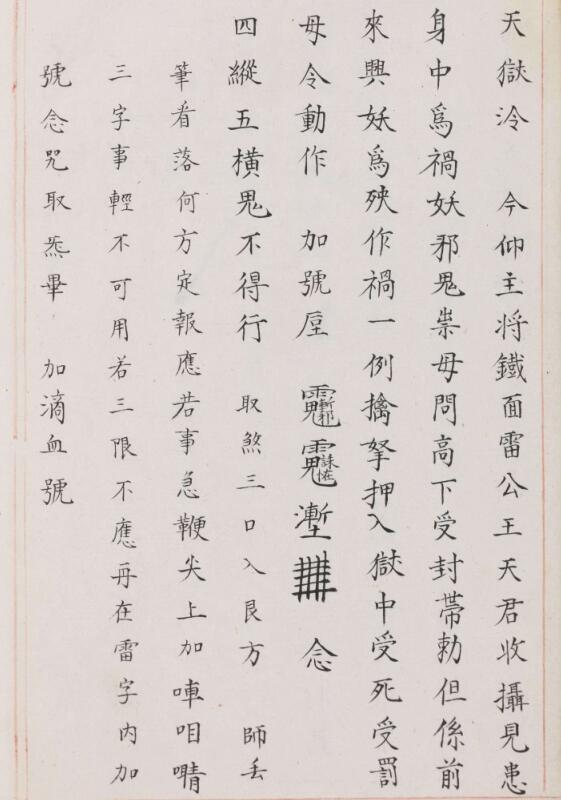 天獄泠　今仰主将鐵面雷公王天君收攝見患
身中爲禍妖邪鬼祟毋問高下受封帶勅但係前
來興妖爲殃作禍一例擒拏押入獄中受死受罰
毋令動作　加號　念
四縱五橫鬼不得行　取煞三口入艮方　師丢
筆看落何方定報應若事急鞭尖上加㖠咱啨
三字事輕不可用若三限不應再在雷字内加
號念咒取炁畢　加滴血號